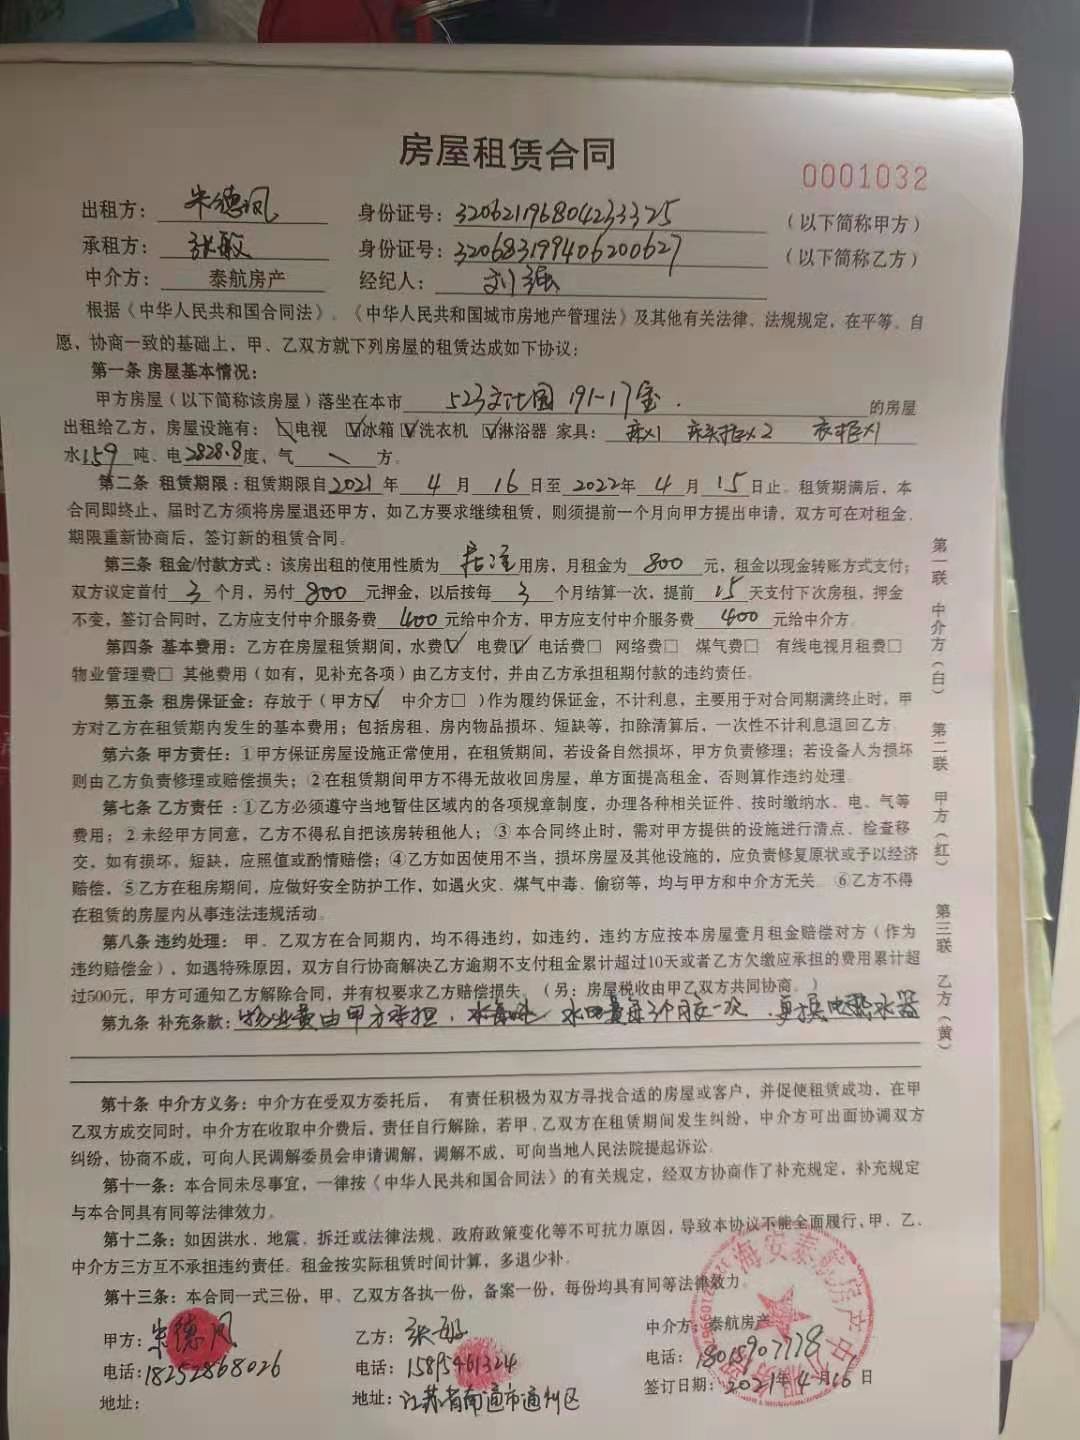 房屋租赁合同
0001032
出租方： 朱德凤 身份证号：320621196804233325 （以下简称甲方）
承租方： 张敏 身份证号：320683199406200627 （以下简称乙方）
中介方： 泰航房产 经纪人： 刘强
根据《中华人民共和国合同法》、《中华人民共和国城市房地产管理法》及其他有关法律、法规规定，在平等、自
愿，协商一致的基础上，甲、乙双方就下列房屋的租赁达成如下协议：
第一条 房屋基本情况：
甲方房屋（以下简称该房屋）落坐在本市 523文化园 191-17室. 的房屋
出租给乙方，房屋设施有：☐电视 ☑冰箱☑洗衣机 ☑淋浴器 家具： 床×1 床头柜×2 衣柜×1
水159吨、电2828.8度、气 \ 方。
第二条 租赁期限：租赁期限自2021年 4 月 16 日至 2022年 4 月 15日止。租赁期满后，本
合同即终止，届时乙方须将房屋退还甲方，如乙方要求继续租赁，则须提前一个月向甲方提出申请，双方可在对租金、
期限重新协商后，签订新的租赁合同。
第三条 租金/付款方式：该房出租的使用性质为 居住 用房，月租金为 800 元，租金以现金转账方式支付；
双方议定首付 3 个月，另付 800 元押金，以后按每 3 个月结算一次，提前 15 天支付下次房租，押金
不变，签订合同时，乙方应支付中介服务费 400 元给中介方，甲方应支付中介服务费 400 元给中介方。
第四条 基本费用：乙方在房屋租赁期间，水费☑ 电费☑ 电话费☐ 网络费☐ 煤气费☐ 有线电视月租费☐
物业管理费☐ 其他费用（如有，见补充各项）由乙方支付，并由乙方承担租期付款的违约责任。
第五条 租房保证金：存放于（甲方☑ 中介方☐ ）作为履约保证金，不计利息，主要用于对合同期满终止时，甲
方对乙方在租赁期内发生的基本费用；包括房租、房内物品损坏、短缺等，扣除清算后，一次性不计利息退回乙方。
第六条 甲方责任：①甲方保证房屋设施正常使用，在租赁期间，若设备自然损坏，甲方负责修理；若设备人为损坏
则由乙方负责修理或赔偿损失；②在租赁期间甲方不得无故收回房屋，单方面提高租金，否则算作违约处理。
第七条 乙方责任：①乙方必须遵守当地暂住区域内的各项规章制度，办理各种相关证件、按时缴纳水、电、气等
费用；②未经甲方同意，乙方不得私自把该房转租他人；③本合同终止时，需对甲方提供的设施进行清点、检查移
交，如有损坏，短缺，应照值或酌情赔偿；④乙方如因使用不当，损坏房屋及其他设施的，应负责修复原状或予以经济
赔偿，⑤乙方在租房期间，应做好安全防护工作，如遇火灾、煤气中毒、偷窃等，均与甲方和中介方无关。⑥乙方不得
在租赁的房屋内从事违法违规活动。
第八条 违约处理：甲、乙双方在合同期内，均不得违约，如违约，违约方应按本房屋壹月租金赔偿对方（作为
违约赔偿金），如遇特殊原因，双方自行协商解决乙方逾期不支付租金累计超过10天或者乙方欠缴应承担的费用累计超
过500元，甲方可通知乙方解除合同，并有权要求乙方赔偿损失。（另：房屋税收由甲乙双方共同协商。）
第九条 补充条款：物业费由甲方承担，水电费每3个月交一次 更换电热水器
第十条 中介方义务：中介方在受双方委托后， 有责任积极为双方寻找合适的房屋或客户，并促使租赁成功，在甲
乙双方成交同时，中介方在收取中介费后，责任自行解除，若甲、乙双方在租赁期间发生纠纷，中介方可出面协调双方
纠纷，协商不成，可向人民调解委员会申请调解，调解不成，可向当地人民法院提起诉讼。
第十一条：本合同未尽事宜，一律按《中华人民共和国合同法》的有关规定，经双方协商作了补充规定，补充规定
与本合同具有同等法律效力。
第十二条：如因洪水、地震、拆迁或法律法规、政府政策变化等不可抗力原因，导致本协议不能全面履行，甲、乙、
中介方三方互不承担违约责任。租金按实际租赁时间计算，多退少补。
第十三条：本合同一式三份，甲、乙双方各执一份，备案一份，每份均具有同等法律效力。
甲方：朱德凤 乙方：张敏 中介方：泰航房产
电话：18252868026 电话：15895461324 电话：18015907778
地址： 地址：江苏省南通市通州区 签订日期：2021年4月16日
第一联 中介方（白） 第二联 甲方（红） 第三联 乙方（黄）
海安泰航房产中介服务部